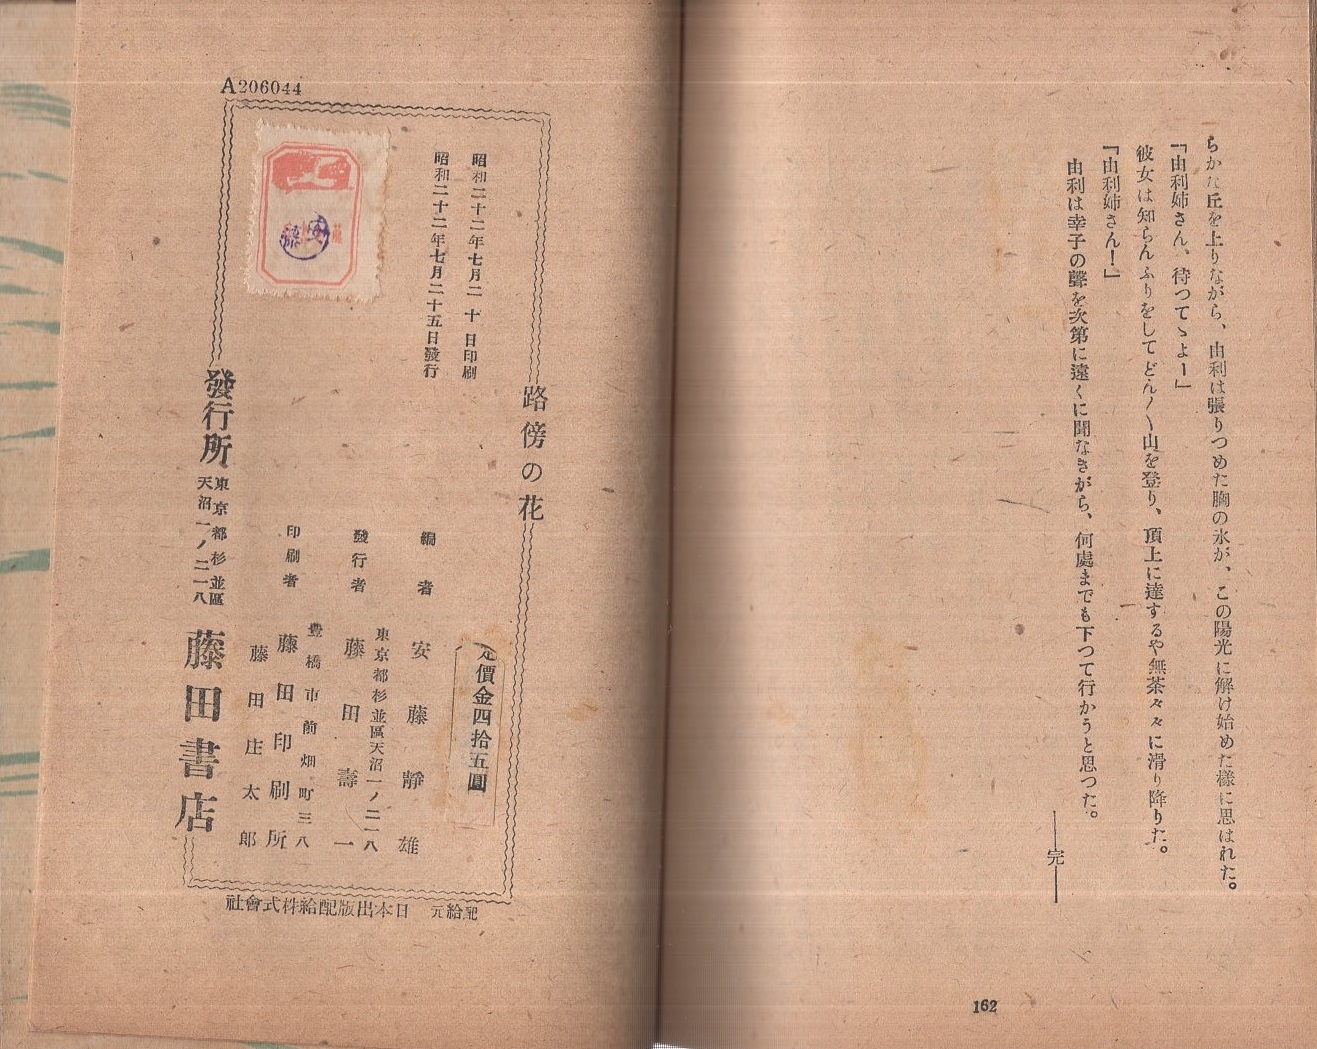 らかな丘を上りながら、由利は張りつめた胸の氷が、この陽光に解け始めた様に思はれた。
「由利姉さん、待つてゝよー」
彼女は知らんふりをしてどん〳〵山を登り、頂上に達するや無茶々々に滑り降りた。
「由利姉さん！」
由利は幸子の聲を次第に遠くに聞なきがら、何處までも下つて行かうと思つた。
――完――
162
路傍の花
昭和二十二年七月二十日印刷
昭和二十二年七月二十五日發行
定價金四拾五圓
編者 安藤靜雄
東京都杉並區天沼一ノ二一八
發行者 藤田壽一
豊橋市前畑町三八
印刷者 藤田印刷所
藤田庄太郎
發行所 東京都杉並區
天沼一ノ二一八
藤田書店
配給元 日本出版配給株式會社
A206044